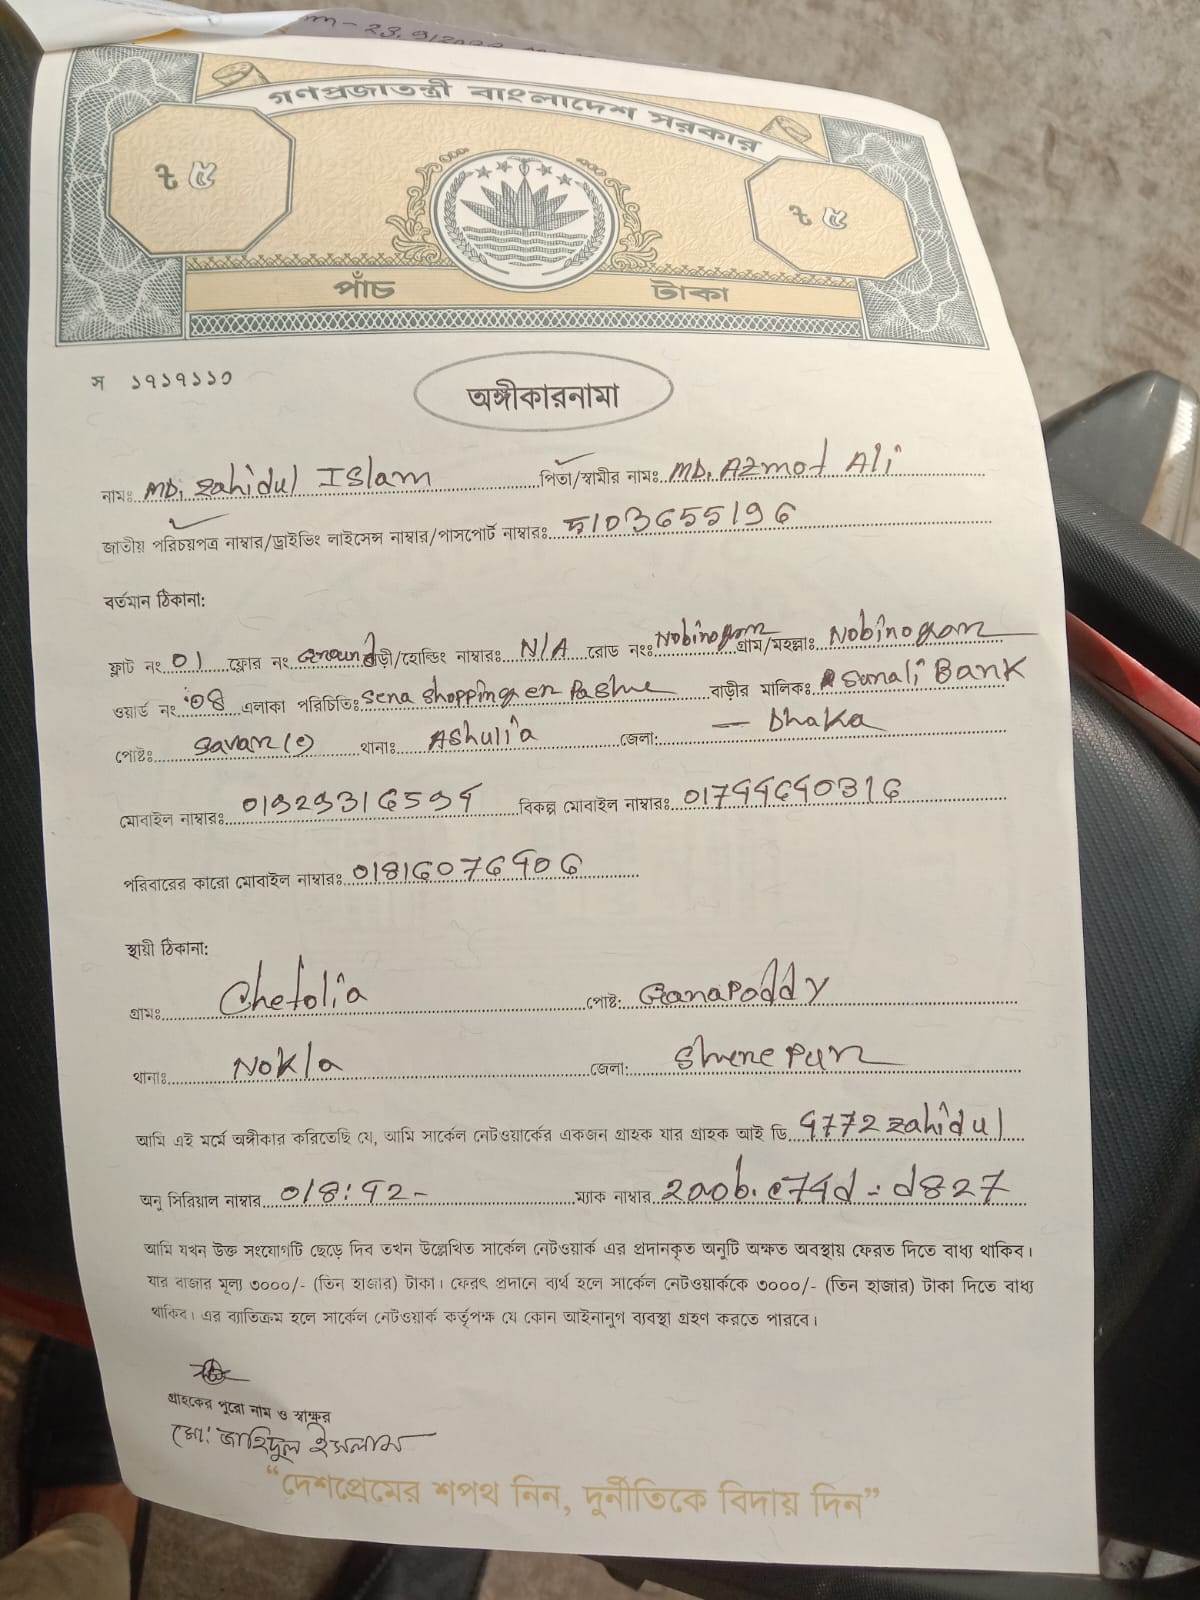 m - 23.9/2022
গণপ্রজাতন্ত্রী বাংলাদেশ সরকার
৳ ৫ ৳ ৫
পাঁচ টাকা
স ১৭১৭১১০
অঙ্গীকারনামা
নামঃ MD. Zahidul Islam পিতা/স্বামীর নামঃ MD. Azmot Ali
জাতীয় পরিচয়পত্র নাম্বার/ড্রাইভিং লাইসেন্স নাম্বার/পাসপোর্ট নাম্বারঃ 5103655196
বর্তমান ঠিকানা:
ফ্লাট নং 01 ফ্লোর নং Ground বাড়ী/হোল্ডিং নাম্বারঃ N/A রোড নংঃ Nobinogor গ্রাম/মহল্লাঃ Nobinogor
ওয়ার্ড নং 08 এলাকা পরিচিতিঃ Sena Shopping er Pashe বাড়ীর মালিকঃ Sonali Bank
পোষ্টঃ Savar (c) থানাঃ Ashulia জেলা: - Dhaka
মোবাইল নাম্বারঃ 01929316594 বিকল্প মোবাইল নাম্বারঃ 01744640316
পরিবারের কারো মোবাইল নাম্বারঃ 01816076406
স্থায়ী ঠিকানা:
গ্রামঃ Chetolia পোষ্ট: GanaPoddy
থানাঃ Nokla জেলা: Sherepur
আমি এই মর্মে অঙ্গীকার করিতেছি যে, আমি সার্কেল নেটওয়ার্কের একজন গ্রাহক যার গ্রাহক আই ডি 4772zahidul
অনু সিরিয়াল নাম্বার 018:42- ম্যাক নাম্বার 2a0b.c74d:d827
আমি যখন উক্ত সংযোগটি ছেড়ে দিব তখন উল্লেখিত সার্কেল নেটওয়ার্ক এর প্রদানকৃত অনুটি অক্ষত অবস্থায় ফেরত দিতে বাধ্য থাকিব।
যার বাজার মূল্য ৩০০০/- (তিন হাজার) টাকা। ফেরৎ প্রদানে ব্যর্থ হলে সার্কেল নেটওয়ার্ককে ৩০০০/- (তিন হাজার) টাকা দিতে বাধ্য
থাকিব। এর ব্যতিক্রম হলে সার্কেল নেটওয়ার্ক কর্তৃপক্ষ যে কোন আইনানুগ ব্যবস্থা গ্রহণ করতে পারবে।
গ্রাহকের পুরো নাম ও স্বাক্ষর
মো: জাহিদুল ইসলাম
“দেশপ্রেমের শপথ নিন, দুর্নীতিকে বিদায় দিন”